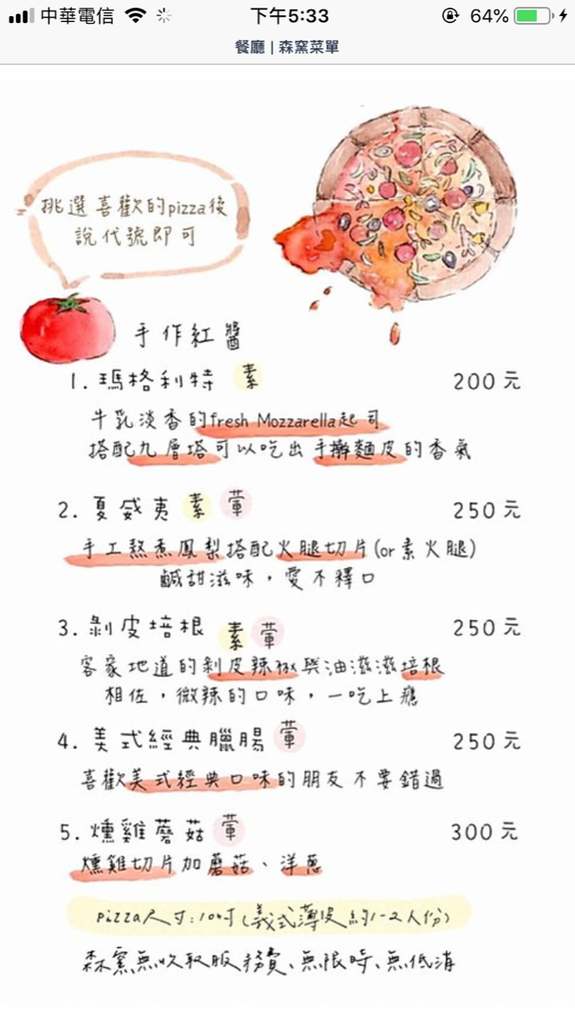 中華電信 下午5:33 64%
餐廳 | 森窯菜單
挑選喜歡的pizza後
說代號即可
手作紅醬
1. 瑪格利特 素 200元
牛乳淡香的fresh Mozzarella起司
搭配九層塔可以吃出手擀麵皮的香氣
2. 夏威夷 素 葷 250元
手工熬煮鳳梨搭配火腿切片(or素火腿)
鹹甜滋味，愛不釋口
3. 剝皮培根 素 葷 250元
客家地道的剝皮辣椒與油滋滋培根
相佐，微辣的口味，一吃上癮
4. 美式經典臘腸 葷 250元
喜歡美式經典口味的朋友不要錯過
5. 燻雞蘑菇 葷 300元
燻雞切片加蘑菇、洋蔥
pizza尺寸:10吋(義式薄皮約1-2人份)
森窯無收取服務費、無限時、無低消